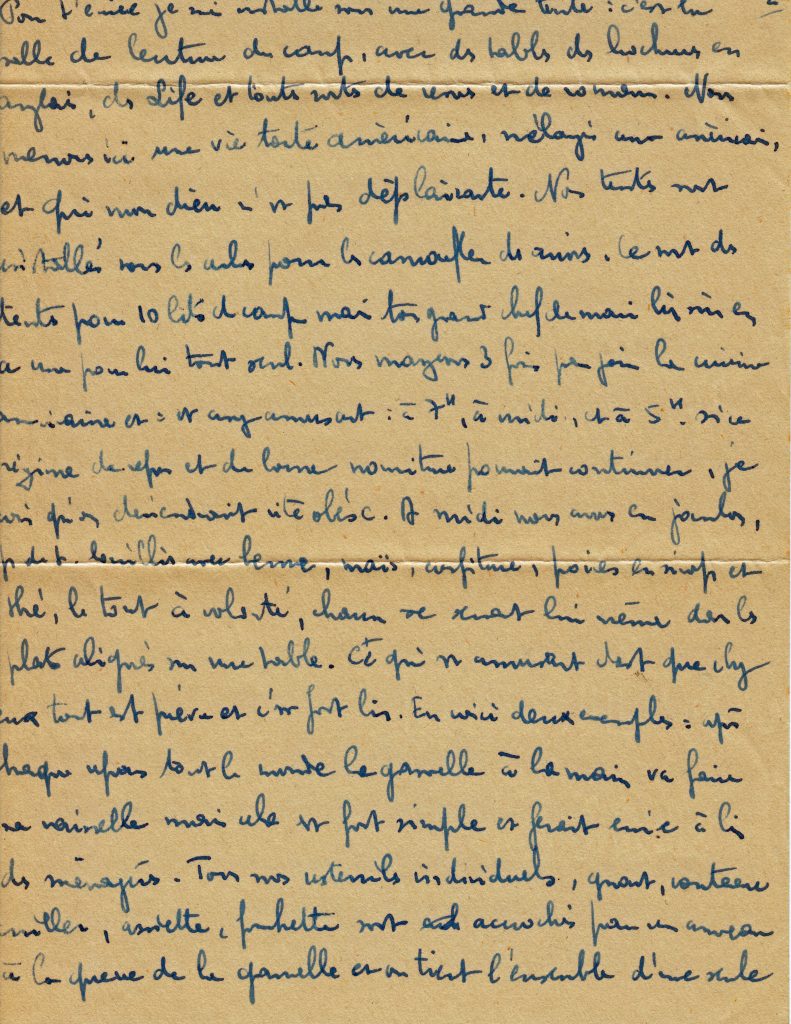 Pour t'écrire je suis installé sous une grande tente : c'est la 2
salle de lecture du camp, avec des tables des brochures en
anglais, des Life et toutes sortes de revues et de romans. Nous
menons ici une vie toute américaine, mélangés aux américains,
et qui mon dieu n'est pas déplaisante. Nos tentes sont
installés sous les arbres pour les camoufler des avions. Ce sont des
tentes pour 10 lits de camp mais ton grand chef de mari lui en
a une pour lui tout seul. Nous mangeons 3 fois par jour la cuisine
américaine et est amusant : à 7H, à midi, et à 5H. si ce
régime de repos et de bonne nourriture pouvait continuer, je
crois qu'on deviendrait vite obèse. A midi nous avons eu jambon,
p de t. bouillies avec beurre, maïs, confiture, poires en sirop et
thé, le tout à volonté, chacun se servant lui même dans les
plats alignés sur une table. Ce qui est amusant c'est que chez
eux tout est prévu et c'est fort bien. En voici deux exemples : après
chaque repas tout le monde la gamelle à la main va faire
sa vaisselle mais cela est fort simple et ferait envie à bien
des ménagères. Tous nos ustensiles individuels, quart, couteau
cuiller, assiette, fourchette sont accrochés par un anneau
à la queue de la gamelle et on tient l'ensemble d'une seule